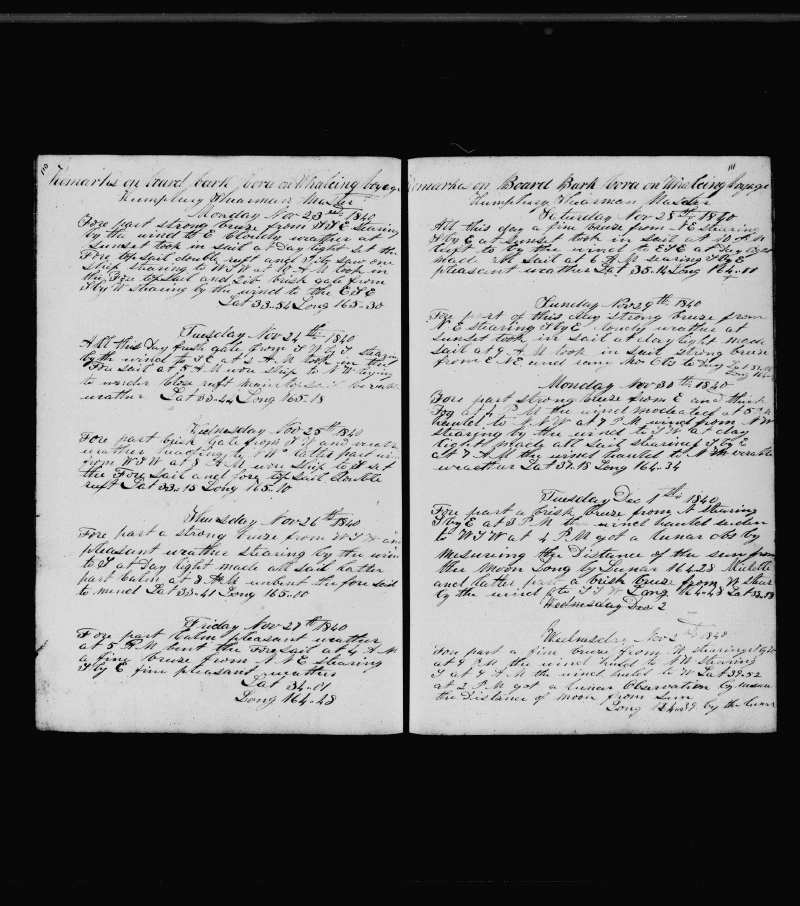 110
Remarks on board bark bora on Whaleing voyage
Humphry Shearman Master
Monday Nov 23 1840
Fore part strong breze from SSE stearing
by the wind to E Cloudy weather at
Sunset took in sail a Day light set the
Fore top sail double reft and Jib saw one
Ship stearing to WSW at 10 A M took in
the Fore topsail and Jib brisk gale from
S by W stearing by the wind to the ESE
Lat 33-54 Long 165-30
Tuesday Nov 24 th 1840
All this Day fresh gale from S W by S stearing
by the wind to S E at 2 A M took in the
Fore sail at 5 A M wore Ship to N W trying
to winder Close reft main top sail
weather Lat 33-44 Long 165-18
Wednesday Nov 25 th 1840
Fore part brisk gale from S W and
weather heading by W latter part
from WSW at 8 A M wore Ship to S set
the Fore Sail and fore top sail Double
reft Lat 33-15 Long 165-10
Thursday Nov 26 th 1840
Fore part a strong breze from W S W and
pleasant weather stearing by the wind
to S at Day light made all sail Latter
part Calm at 8 A M unbent the fore sail
to mend Lat 33-41 Long 165-00
Friday Nov 27 th 1840
Fore part Calm pleasant weather
at 5 P M bent the Foresail at 4 A M
a fine breze from N N E stearing
S by E fine pleasant weather
Lat 34-01
Long 164-48
111
Remarks on Board Bark bora on Whaleing voyage
Humphry Shearman Master
Saturday Nov 28 th 1840
All this day a fine breze from N E stearing
S by E at Sunset took in sail at
luft to by the wind to ESE at Day light
made all Sail at 6 A M stearing S by E
pleasant weather Lat 35-14 Long 164-11
Sunday Nov 29 th 1840
Fore part of this day strong breze from
N E stearing S by E weather at
Sunset took in sail at day light made
sail at 9 A M took in sail strong breze
from E N E and rainy No Obs to Day Lat
Long
Monday Nov 30 th 1840
Fore part strong breze from E and thick
Fog at 4 P M the wind moderated at 5 P M
hauled to N N W at 7 P M wind from N W
stearing by the wind to S W at day
light made all sail stearing S by E
at 7 A M the wind hauled to N
weather Lat 37-18 Long 164-34
Tuesday Dec 1 st 1840
Fore part a brisk breze from N stearing
S by E at 3 P M the wind hauled suden
to W S W at 4 P M got a lunar obs by
Mesureing the Distance of the sun from
the Moon Long by Lunar 164-28 Midle
and latter part a brisk breze from W stear
by the wind to S S W Long 164-48 Lat 38-18
Wednesday Dec 2
Wednesday Nov 2 1840
Fore part a fine breze from W stearing S by W
at 9 P M the wind huld to N W stearing
S at 9 A M the wind huld to W Lat 39-52
at 2 P M got a lunar Observation by mesure
the Distance of moon from Sun
Long by the lunar